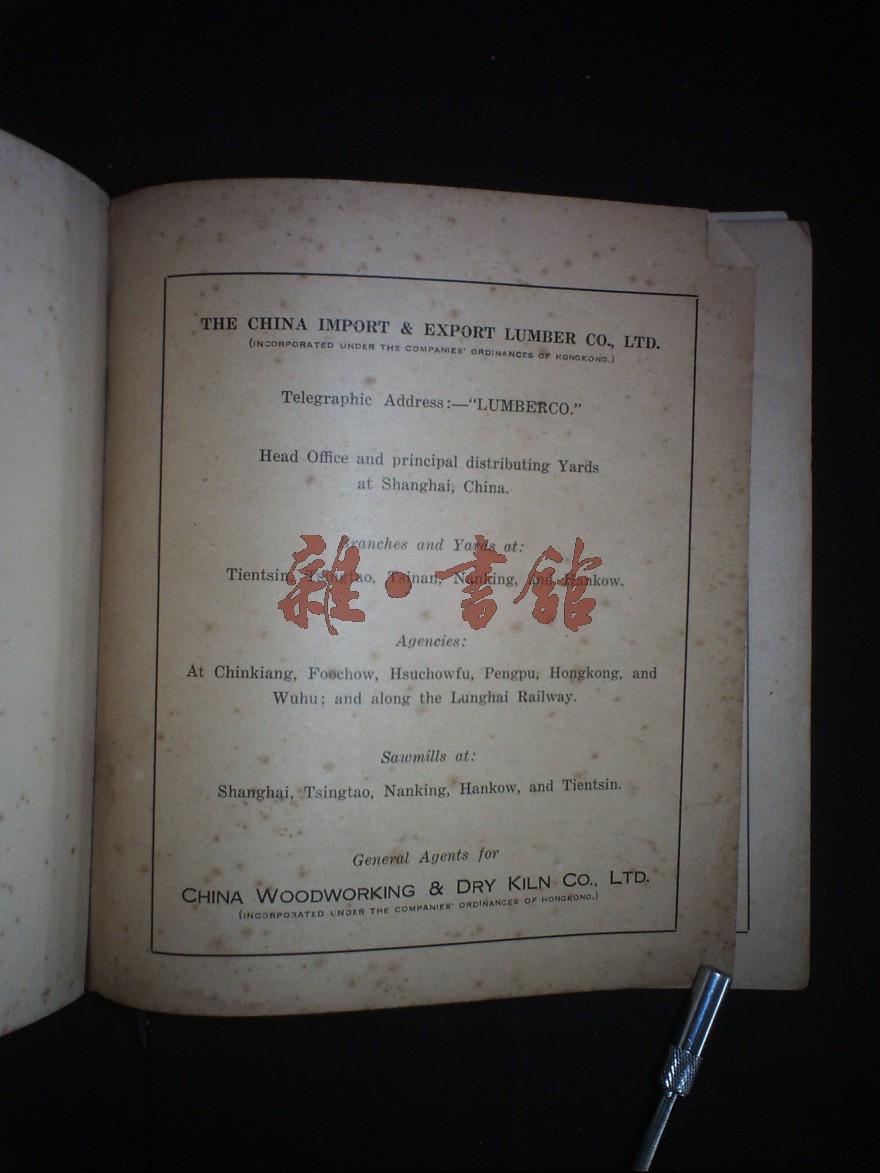 THE CHINA IMPORT & EXPORT LUMBER CO., LTD.
(INCORPORATED UNDER THE COMPANIES' ORDINANCES OF HONGKONG.)
Telegraphic Address:—"LUMBERCO."
Head Office and principal distributing Yards
at Shanghai, China.
Branches and Yards at:
Tientsin, Tsingtao, Tsinan, Nanking, and Hankow.
雜·書館
Agencies:
At Chinkiang, Foochow, Hsuchowfu, Pengpu, Hongkong, and
Wuhu; and along the Lunghai Railway.
Sawmills at:
Shanghai, Tsingtao, Nanking, Hankow, and Tientsin.
General Agents for
CHINA WOODWORKING & DRY KILN CO., LTD.
(INCORPORATED UNDER THE COMPANIES' ORDINANCES OF HONGKONG.)